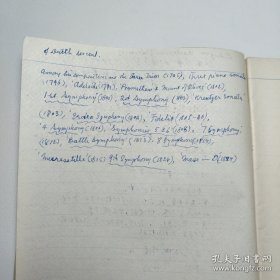 of
Among his compositions are the Three Trios (1795), three piano Sonatas
(1796), Adelaide (1796), Prometheus & Mount of Olives (1802)
1st Symphony (1800), 2nd Symphony (1802), Kreutzer Sonata
(1803), Eroica Symphony (1804), Fidelio (1805-
4 Symphony Symphonies 5 & 6 (1808), 7 Symphony
Battle Symphony (1813), 8 Symphony
9th Symphony (1824), Mass in D
孔夫子旧书网